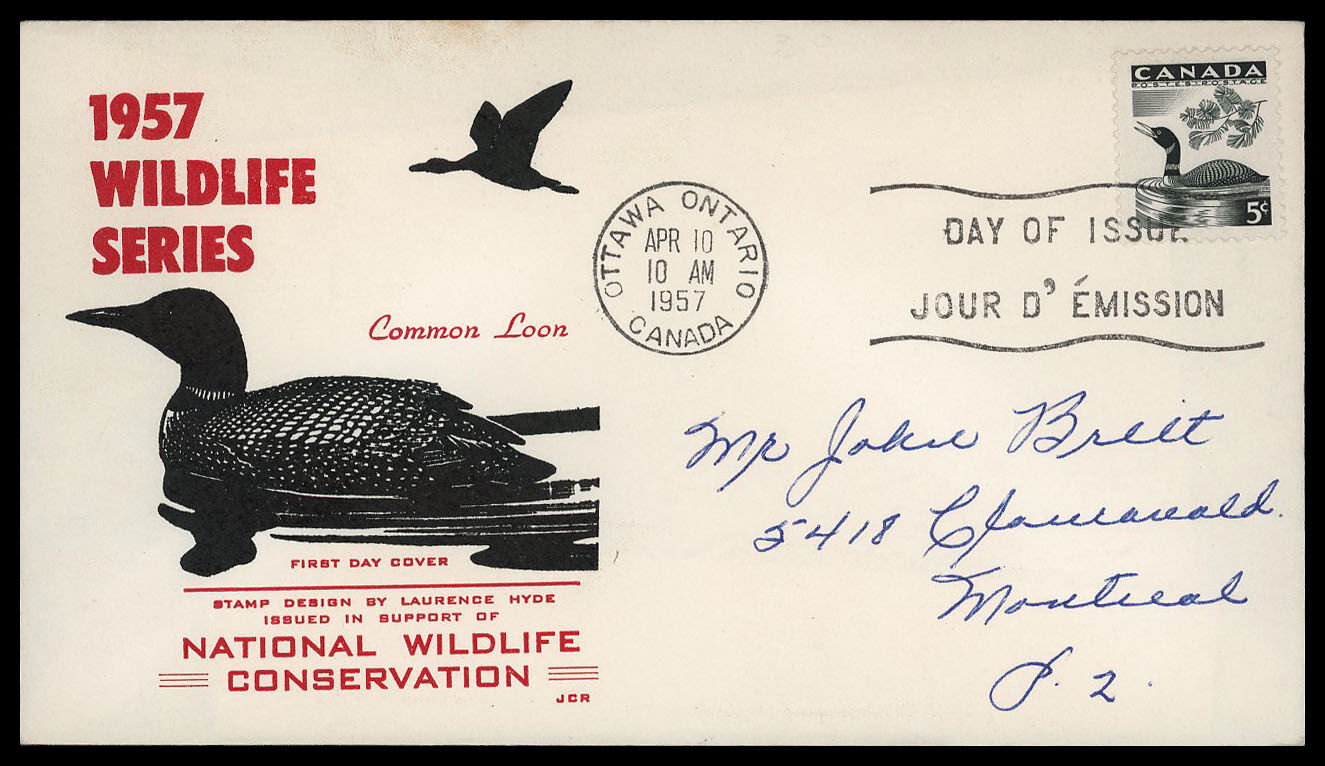 1957
WILDLIFE
SERIES
Common Loon
FIRST DAY COVER
STAMP DESIGN BY LAURENCE HYDE
ISSUED IN SUPPORT OF
NATIONAL WILDLIFE
CONSERVATION
JCR
OTTAWA ONTARIO
APR 10
10 AM
1957
CANADA
CANADA
POSTES-POSTAGE
5¢
DAY OF ISSUE
JOUR D'ÉMISSION
Mr John
5418
Montreal
P. 2.